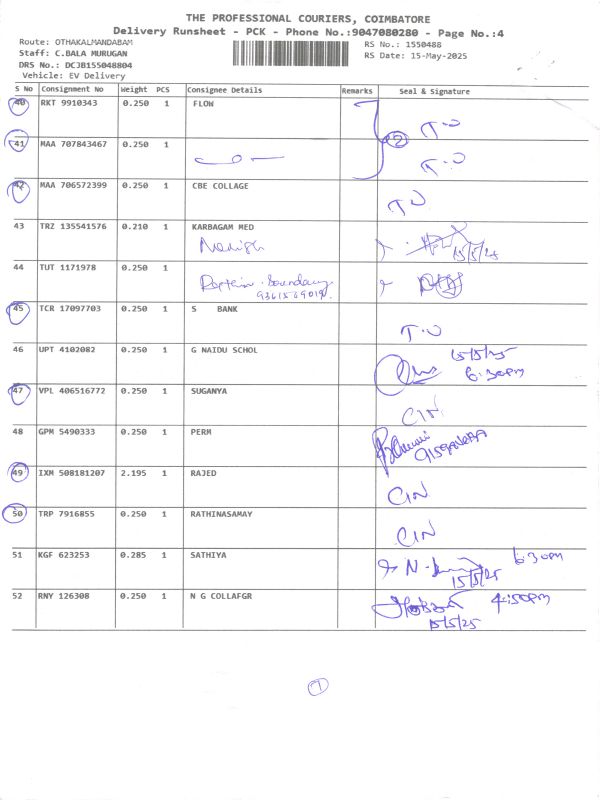 THE PROFESSIONAL COURIERS, COIMBATORE
Delivery Runsheet - PCK - Phone No.:9047080280 - Page No.:4
Route: OTHAKALMANDABAM
RS No.: 1550488
Staff: C.BALA MURUGAN
RS Date: 15-May-2025
DRS No.: DCJB155048804
Vehicle: EV Delivery
S No Consignment No Weight PCS Consignee Details Remarks Seal & Signature
40 RKT 9910343 0.250 1 FLOW
T-O
41 MAA 707843467 0.250 1
2
T-O
42 MAA 706572399 0.250 1 CBE COLLAGE
TO
43 TRZ 135541576 0.210 1 KARBAGAM MED
15/5/25
44 TUT 1171978 0.250 1
45 TCR 17097703 0.250 1 S BANK
T-O
46 UPT 4102082 0.250 1 G NAIDU SCHOL
15/5/25
6:30pm
47 VPL 406516772 0.250 1 SUGANYA
CIN
48 GPM 5490333 0.250 1 PERM
49 IXM 508181207 2.195 1 RAJED
CIN
50 TRP 7916855 0.250 1 RATHINASAMAY
CIN
51 KGF 623253 0.285 1 SATHIYA
6:30pm
15/5/25
52 RNY 126308 0.250 1 N G COLLAFGR
4:50pm
15/5/25